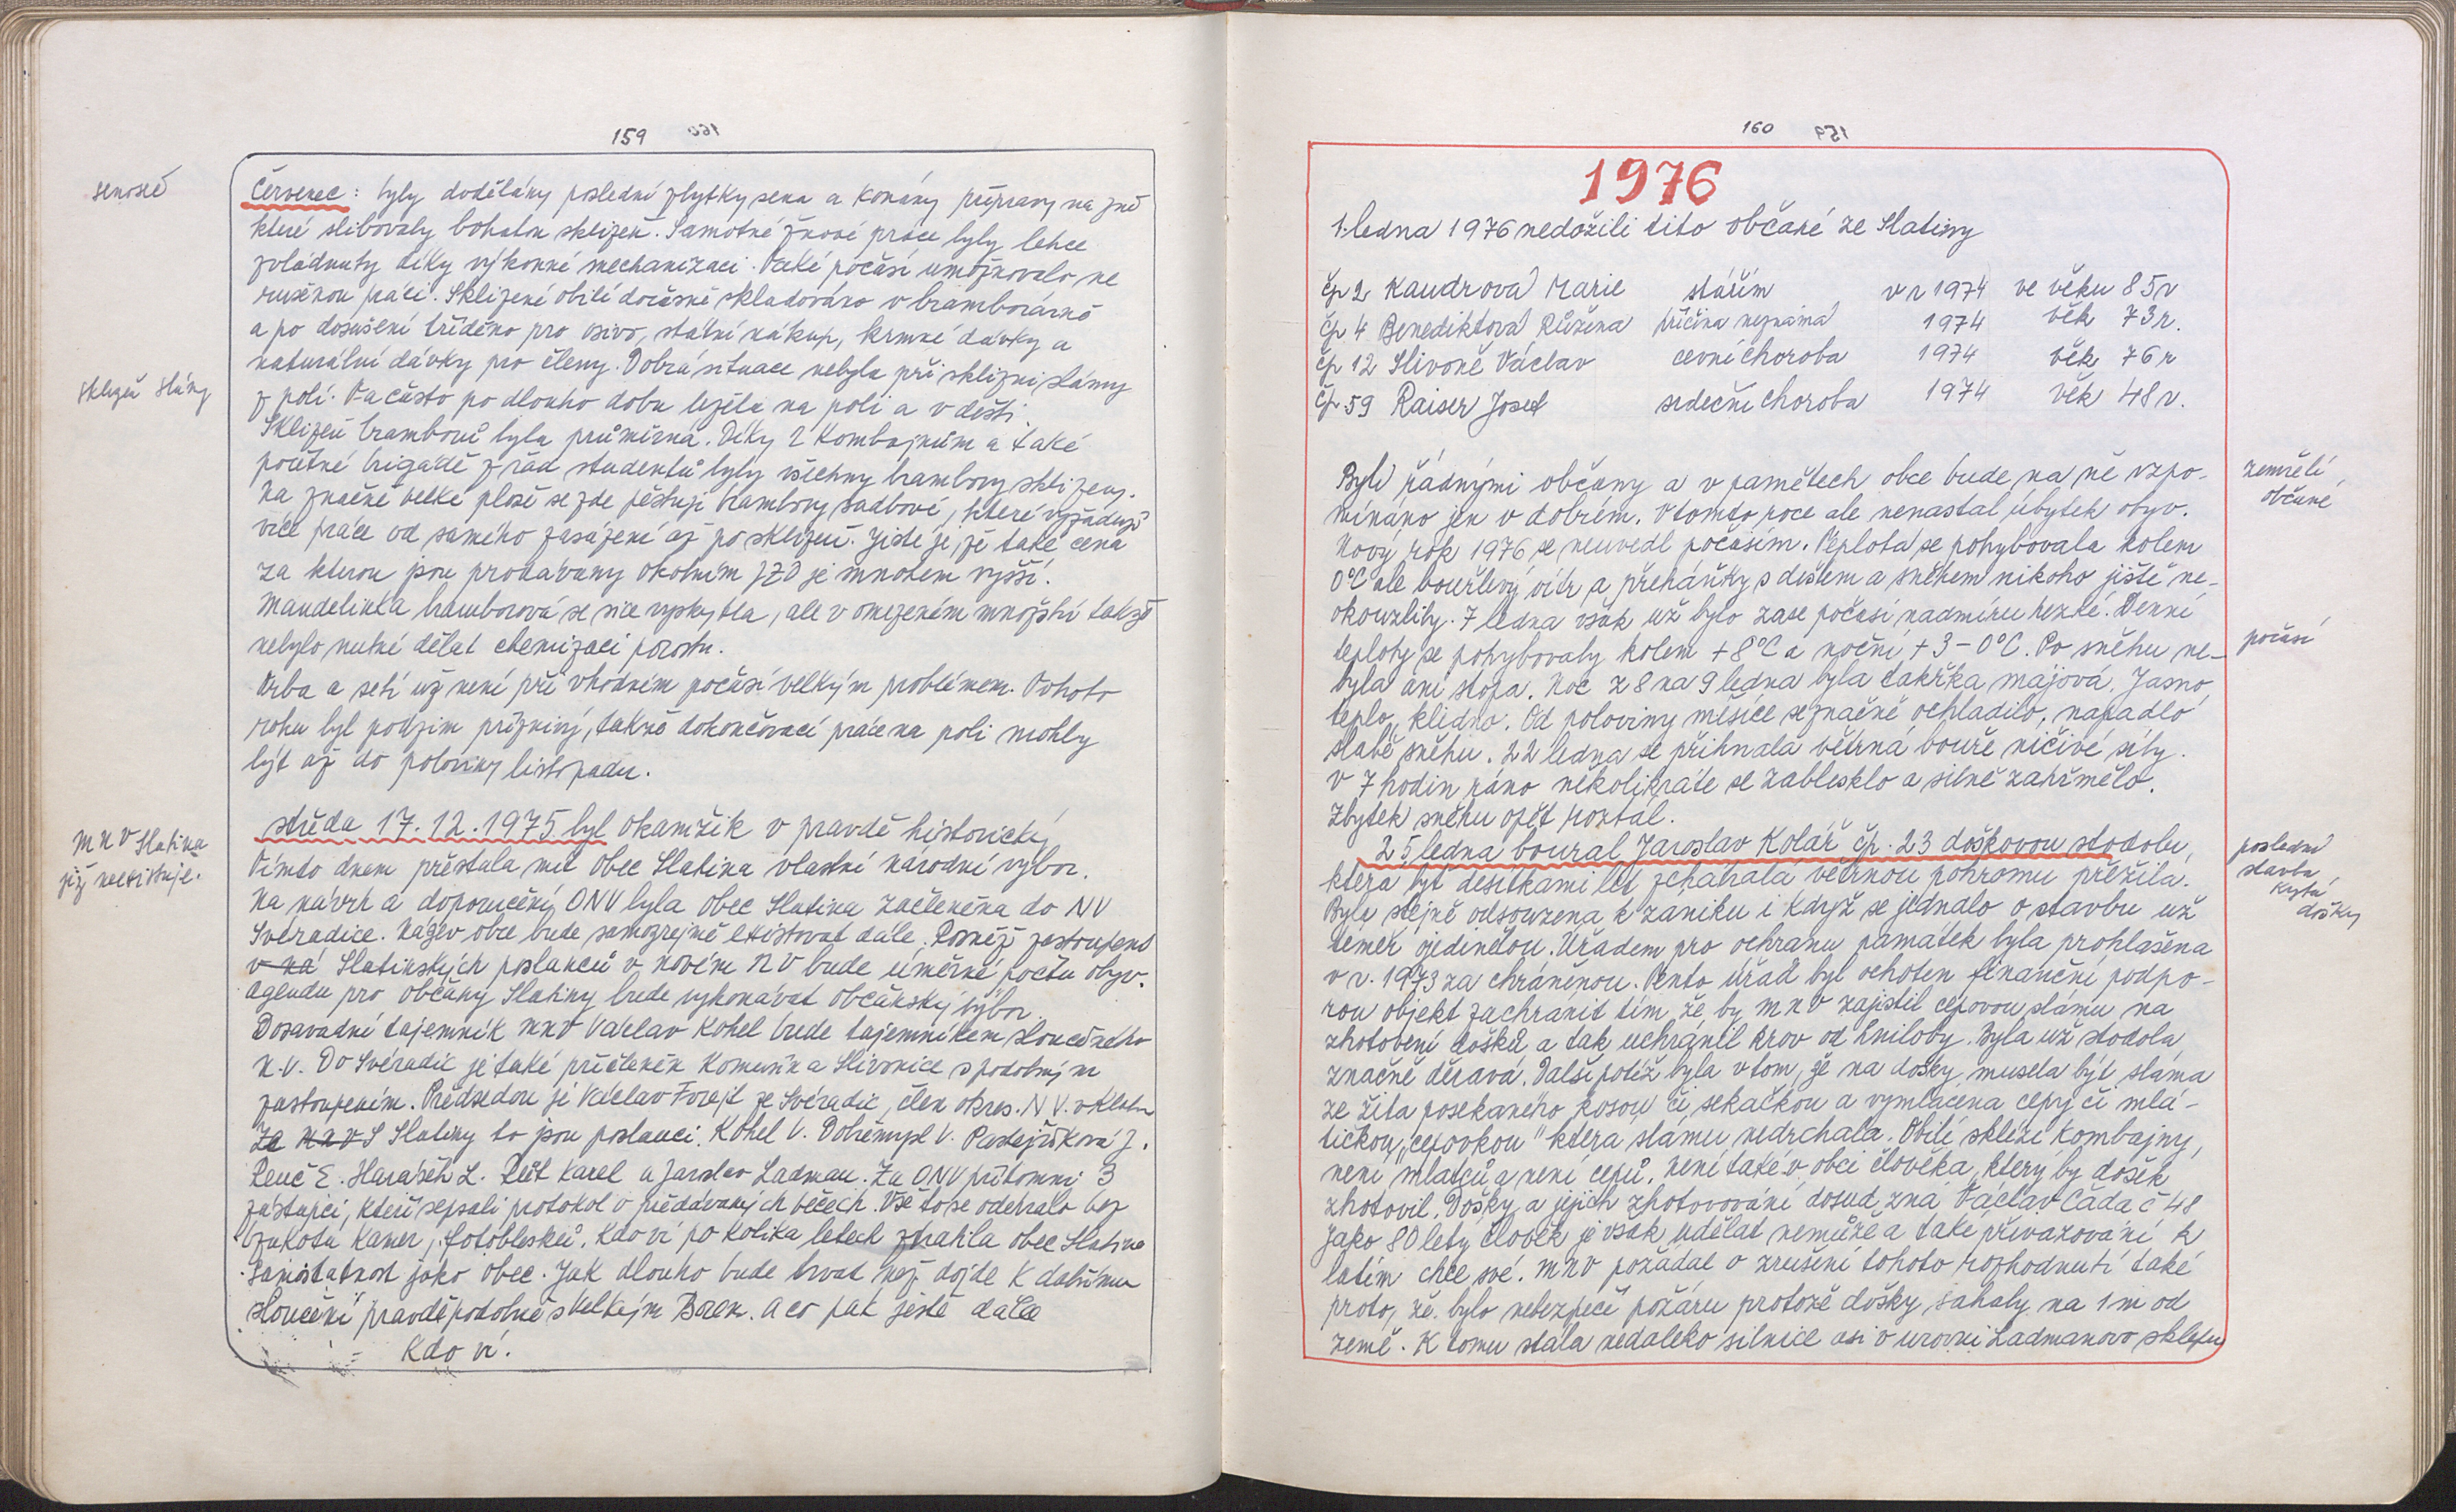 159
senoseč
Červenec: byly dodělány poslední zbytky sena a konány přípravy na žně
které slibovaly bohatou sklizeň. Samotné žňové práce byly lehce
zvládnuty díky výkonné mechanizaci. Také počasí umožňovalo ne
rušenou práci. Sklizené obilí dočasně skladováno v bramborárně
a po dosušení tříděno pro osivo, státní nákup, krmné dávky a
naturální dávky pro členy. Dobrá situace nebyla při sklizni slámy
sklizeň slámy
z polí. Ta často po dlouho dobu ležela na poli a v dešti.
Sklizeň bramborů byla průměrná. Díky 2 kombajnům a také
početné brigádě z řad studentů byly všechny brambory sklizeny.
Na značně velké ploše se zde pěstují brambory sadbové, které vyžadují
více práce od samého zasázení až po sklizeň. Jisté je, že také cena
za kterou jsou prodávány okolním JZD je mnohem vyšší.
Mandelinka bramborová se sice vyskytla, ale v omezeném množství takže
nebylo nutné dělat chemizaci porostu.
Orba a setí už není při vhodném počasí velkým problémem. Tohoto
roku byl podzim příznivý, takže dokončovací práce na poli mohly
být až do poloviny listopadu.
středa 17.12.1975 byl okamžik v pravdě historický
MNV Slatina
již neexistuje.
Tímto dnem přestala mít obec Slatina vlastní národní výbor.
Na návrh a doporučení ONV byla obec Slatina začleněna do NV
Svéradice. Název obce bude samozřejmě existovat dále. Rovněž zastoupení
v ná Slatinských poslanců v novém NV bude úměrné počtu obyv.
Agendu pro občany Slatiny bude vykonávat občanský výbor.
Dosavadní tajemník MNV Václav Kohel bude tajemníkem sloučeného
N.V. Do Svéradic je také přičleněn Komušín a Slivonice s podobným
zastoupením. Předsedou je Václav Forejt ze Svéradic, člen okres. N V. v Klatov
Za MNV S Slatiny to jsou poslanci: Kohel V. Dobřemysl V. Pastejříková J.
Renč E. Harášek L. Reit Karel a Jaroslav Ladman. Za ONV přítomni 3
zástupci, kteří sepsali protokol o předávaných věcech. Vše to se odehrálo bez
žukotu kamer, fotoblesků. Kdo ví po kolika letech ztratila obec Slatina
samostatnost jako obec. Jak dlouho bude trvat než dojde k dalšímu
sloučení pravděpodobně s Velkým Borem. A co pak ještě dále
Kdo ví.
160
1976
1. ledna 1976 nedožili tito občané ze Slatiny
čp 2 Kaudrová Marie stářím v r 1974 ve věku 85 r
čp 4 Benediktová Růžena příčina neznámá 1974 věk 73 r.
čp 12 Slivoně Václav cevní choroba 1974 věk 76 r
čp 59 Raiser Josef srdeční choroba 1974 věk 48 r.
Byli řádnými občany a v pamětech obce bude na ně vzpo-
zemřelí
občané
mínáno jen v dobrém. V tomto roce ale nenastal úbytek obyv.
Nový rok 1976 se neuvedl počasím. Teplota se pohybovala kolem
0°C ale bouřlivý vítr a přeháňky s deštěm a sněhem nikoho jistě ne-
okouzlily. 7 ledna však už bylo zase počasí nadmíru hezké. Denní
teploty se pohybovaly kolem +8°C a noční +3 – 0°C. Po sněhu ne-
počasí
byla ani stopa. Noc z 8 na 9 ledna byla takřka májová. Jasno,
teplo, klidno. Od poloviny měsíce se značně ochladilo, napadlo
slabě sněhu. 22 ledna se přihnala větrná bouře ničivé síly.
v 7 hodin ráno několikráte se zablesklo a silně zahřmělo.
Zbytek sněhu opět roztál.
25 ledna boural Jaroslav Kolář čp. 23 doškovou stodolu,
poslední
stavba
krytá
došky
která byť desítkami let zchátralá větrnou pohromu přežila.
Byla stejně odsouzena k zániku i když se jednalo o stavbu už
téměř ojedinělou. Úřadem pro ochranu památek byla prohlášena
v r. 1973 za chráněnou. Tento úřad byl ochoten finanční podpo-
rou objekt zachránit tím že by MNV zajistil cepovou slámu na
zhotovení došků a tak uchránil krov od hniloby. Byla už stodola
značně děravá. Další potíž byla v tom, že na došky musela být sláma
ze žita posekaného kosou či sekačkou a vymlácena cepy či mlá-
tičkou "cepovkou" která slámu nedrchala. Obilí sklízí kombajny,
není mlatců a není cepů. Není také v obci člověka, který by došek
zhotovil. Došky a jejich zhotovování dosud zná Václav Čada č 48
Jako 80 letý člověk je však udělat nemůže a také převazování k
latím chce své. MNV požádal o zrušení tohoto rozhodnutí také
proto, že bylo nebezpečí požáru protože došky sahaly na 1 m od
země. K tomu stála nedaleko silnice asi v úrovni Ladmanovo sklepu